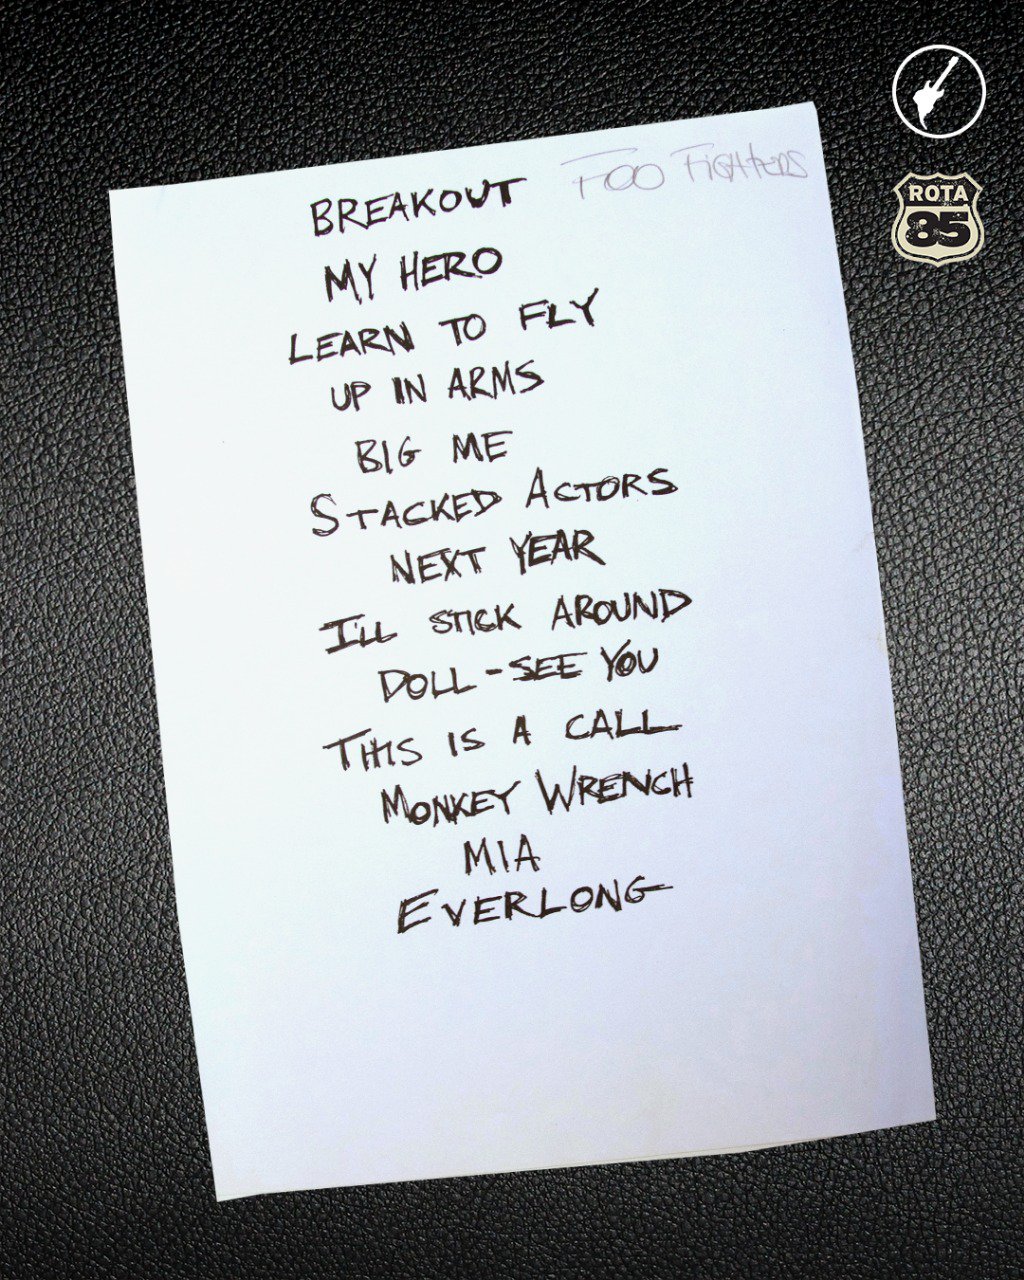 BREAKOUT FOO FIGHTERS
MY HERO
LEARN TO FLY
UP IN ARMS
BIG ME
STACKED ACTORS
NEXT YEAR
I'LL STICK AROUND
DOLL - SEE YOU
THIS IS A CALL
MONKEY WRENCH
MIA
EVERLONG
ROTA
85